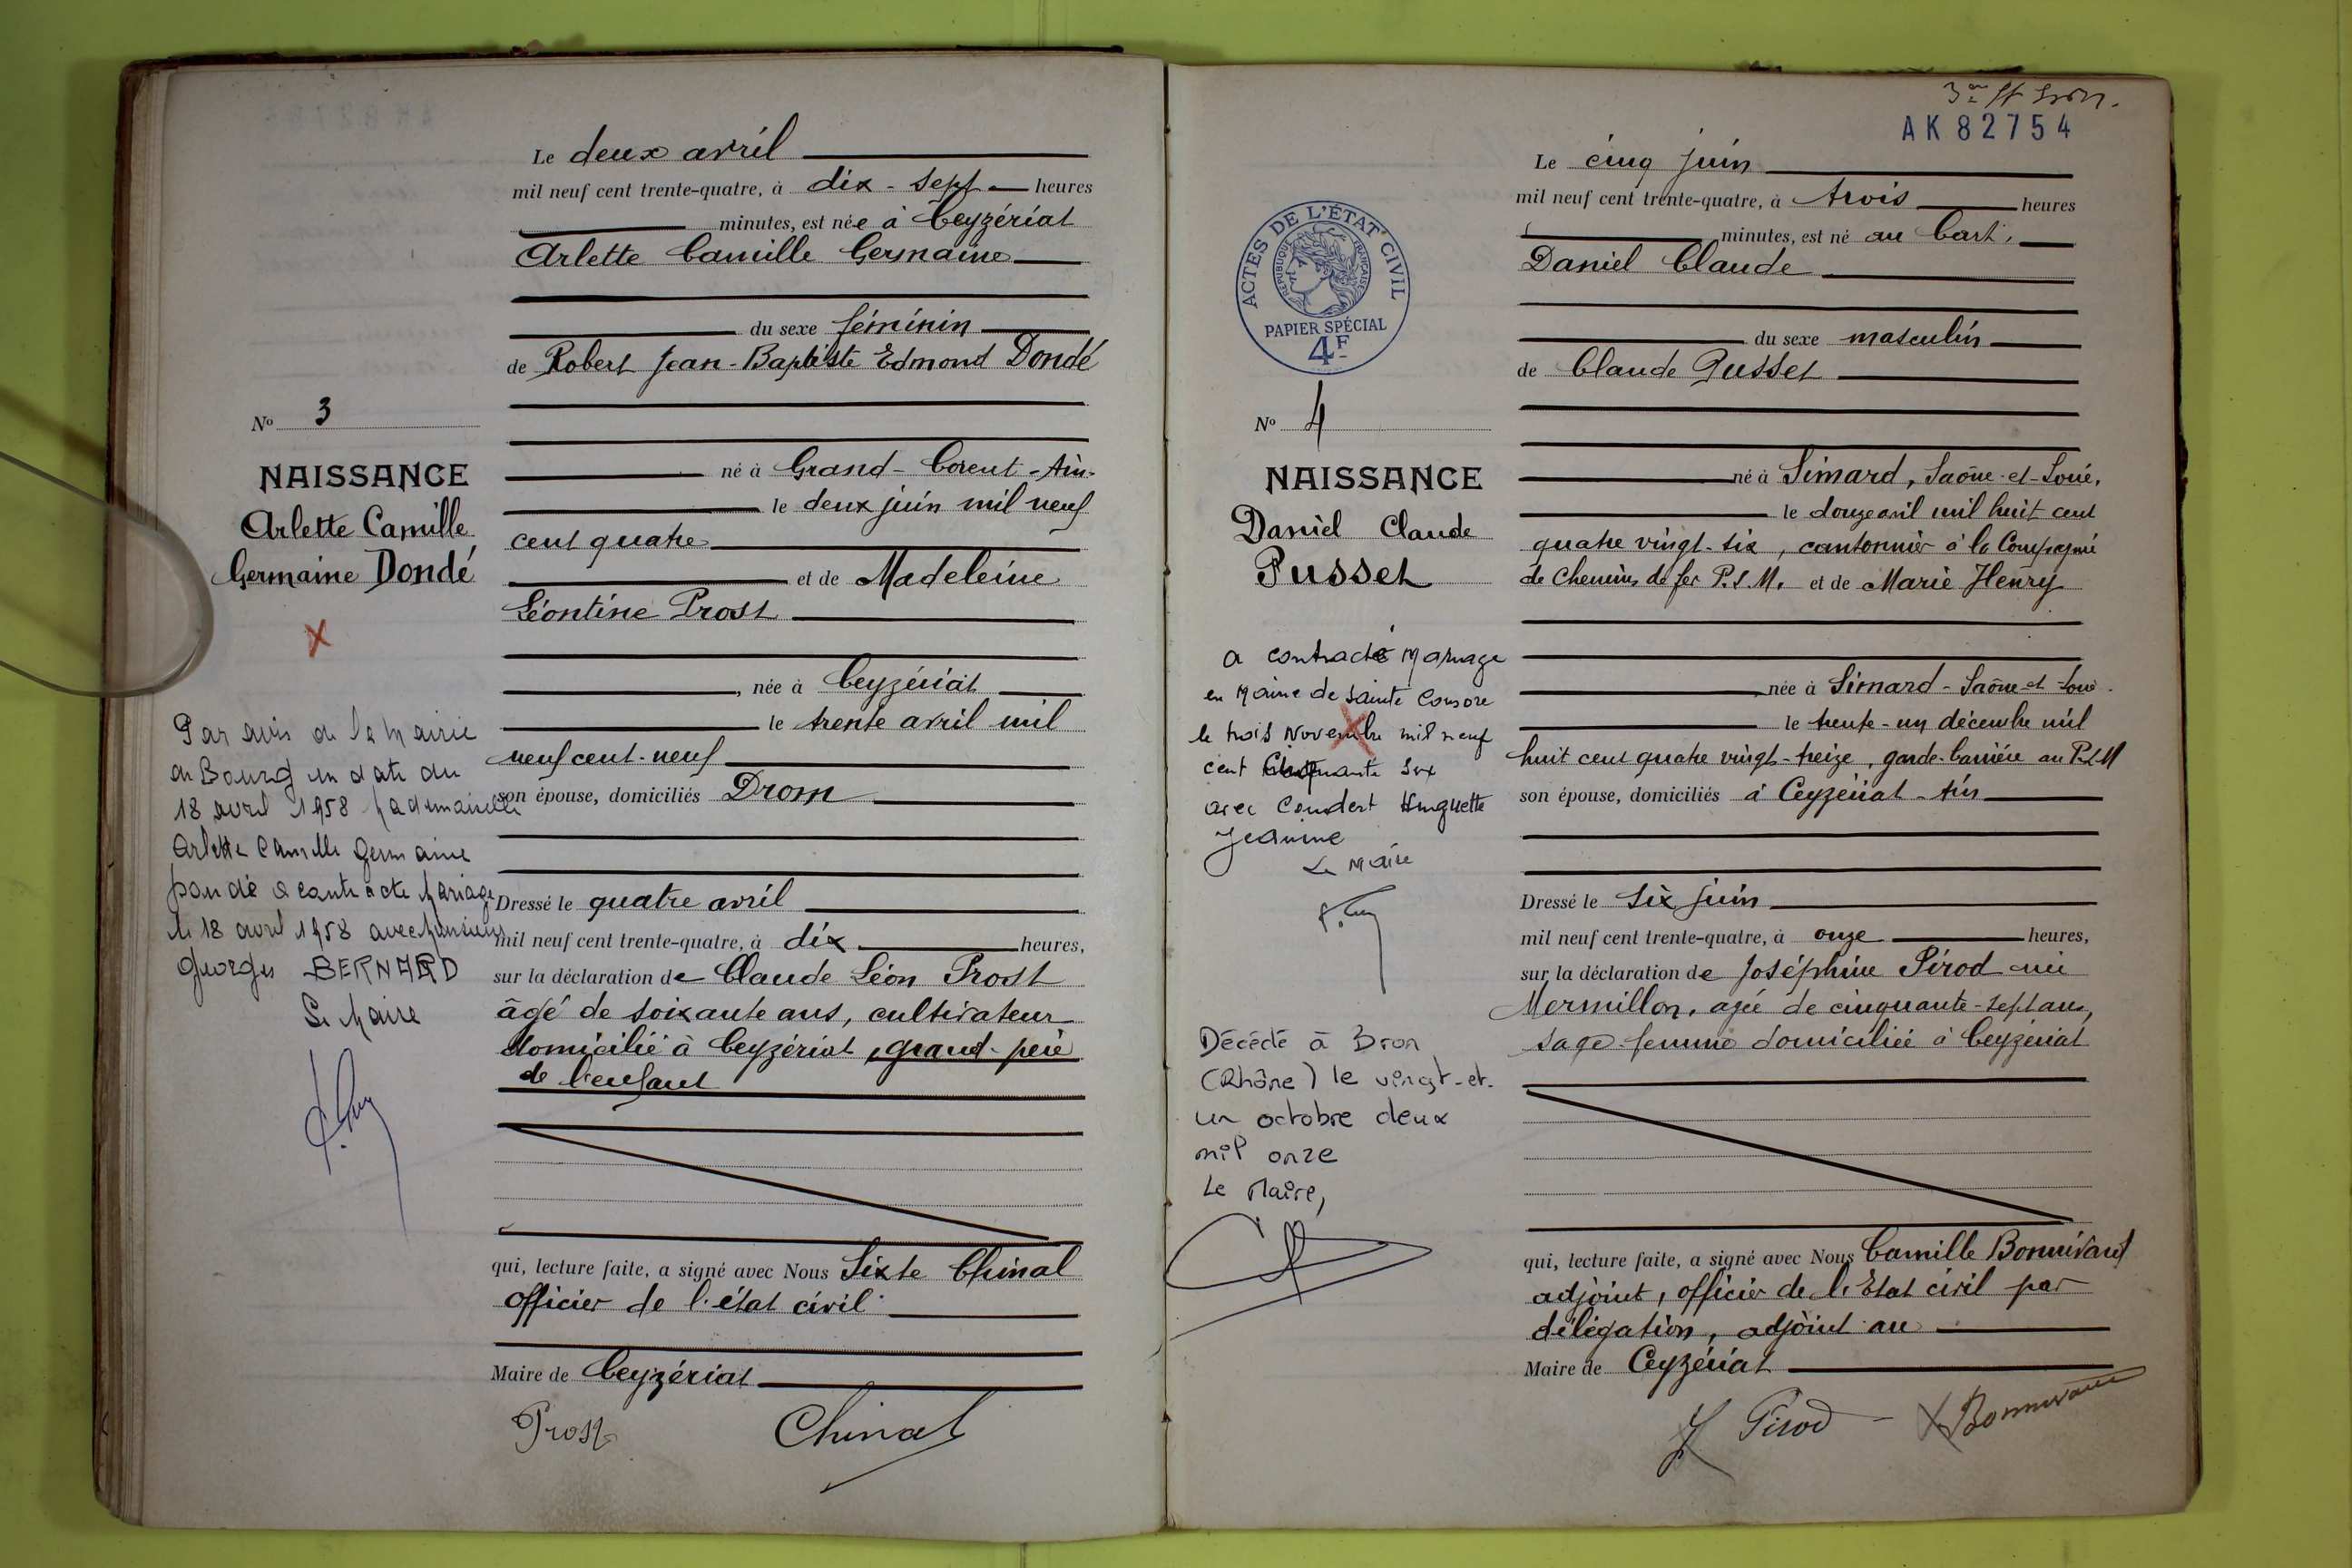 Le deux avril
mil neuf cent trente-quatre, à dix-sept heures
minutes, est née à Ceyzériat
Arlette Camille Germaine
du sexe féminin
de Robert Jean-Baptiste Edmond Dondé
No 3
né à Grand-Corent-Ain-
NAISSANCE
le deux juin mil neuf
Arlette Camille
cent quatre
Germaine Dondé
et de Madeleine
Léontine Prost
, née à Ceyzériat
le trente avril mil
neuf cent-neuf
son épouse, domiciliés Drom
Par avis de la Mairie
de Bourg en date du
18 avril 1958 Mademoiselle
Arlette Camille Germaine
Dondé a contracté Mariage
le 18 avril 1958 avec Monsieur
Georges BERNARD
Le Maire
Dressé le quatre avril
mil neuf cent trente-quatre, à dix heures,
sur la déclaration de Claude Léon Prost
âgé de soixante ans, cultivateur
domicilié à Ceyzériat, grand-père
de l'enfant
qui, lecture faite, a signé avec Nous Sixte Chinal
officier de l'état civil
Maire de Ceyzériat
Prost Chinal
AK 82754
Le cinq juin
mil neuf cent trente-quatre, à trois heures
minutes, est né au Cart.
Daniel Claude
ACTES DE L'ÉTAT CIVIL
RÉPUBLIQUE FRANÇAISE
PAPIER SPÉCIAL
4F
du sexe masculin
de Claude Pusset
No 4
né à Simard, Saône-et-Loire,
NAISSANCE
le douze avril mil huit cent
Daniel Claude
quatre vingt-six, cantonnier à la Compagnie
Pusset
de Chemins de fer P.L.M. et de Marie Henry
née à Simard-Saône-et-Loire.
le trente-un décembre mil
huit cent quatre vingt-treize, garde-barrière au P.L.M
son épouse, domiciliés à Ceyzériat-Ain
a contracté Mariage
en Mairie de Sainte Consorce
le trois Novembre mil neuf
cent Cinquante Six
avec Coudert Huguette
Jeanine
Le Maire
Décédé à Bron
(Rhône) le vingt-et-
un octobre deux
mil onze
Le Maire,
Dressé le six juin
mil neuf cent trente-quatre, à onze heures,
sur la déclaration de Joséphine Pirod née
Mermillon, agée de cinquante-sept ans,
sage-femme domiciliée à Ceyzériat
qui, lecture faite, a signé avec Nous Camille Bonnivant
adjoint, officier de l'Etat civil par
délégation, adjoint au
Maire de Ceyzériat
J Pirod - Bonnivant